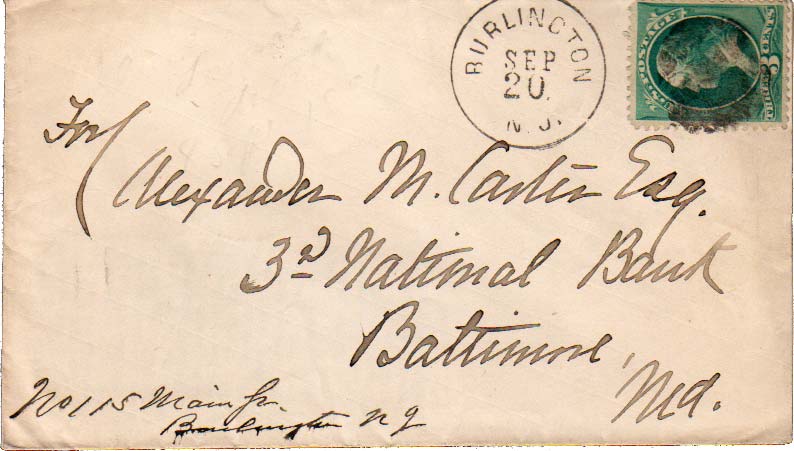 BURLINGTON
SEP
20
N.J.
U.S. POSTAGE
THREE 3 CENTS
For
Alexander M. Carter Esq.
3d National Bank
Baltimore,
Md.
No 115 Main St.
Burlington N J